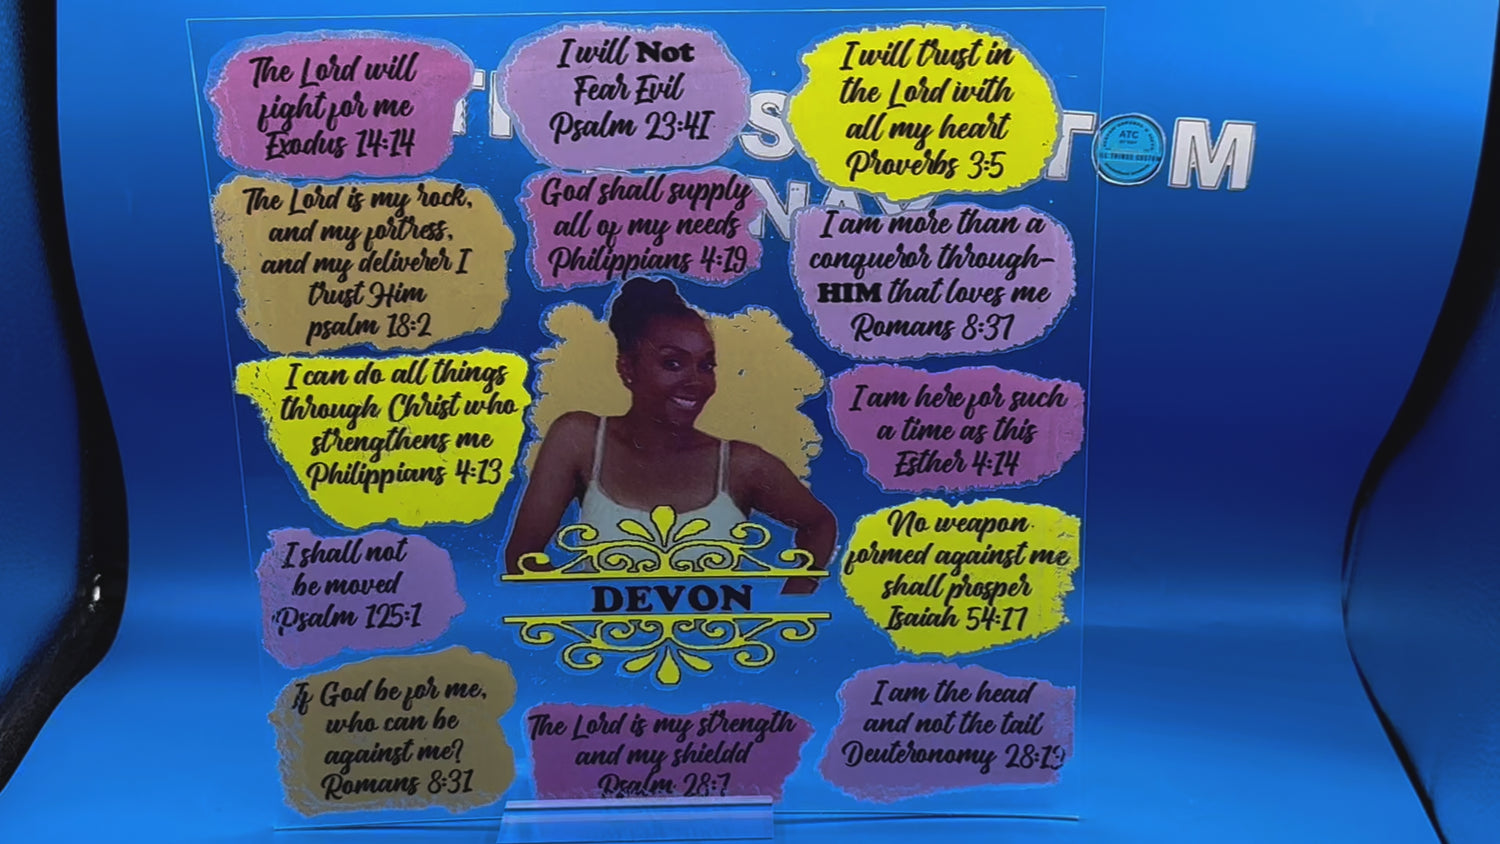 The Lord will
fight for me
Exodus 14:14
I will Not
Fear Evil
Psalm 23:4I
I will trust in
the Lord with
all my heart
Proverbs 3:5
The Lord is my rock,
and my fortress,
and my deliverer I
trust Him
psalm 18:2
God shall supply
all of my needs
Philippians 4:19
I am more than a
conqueror through-
HIM that loves me
Romans 8:37
I can do all things
through Christ who
strengthens me
Philippians 4:13
I am here for such
a time as this
Esther 4:14
I shall not
be moved
Psalm 125:1
DEVON
No weapon
formed against me
shall prosper
Isaiah 54:17
If God be for me,
who can be
against me?
Romans 8:31
The Lord is my strength
and my shieldd
Psalm 28:7
I am the head
and not the tail
Deuteronomy 28:19
ATC